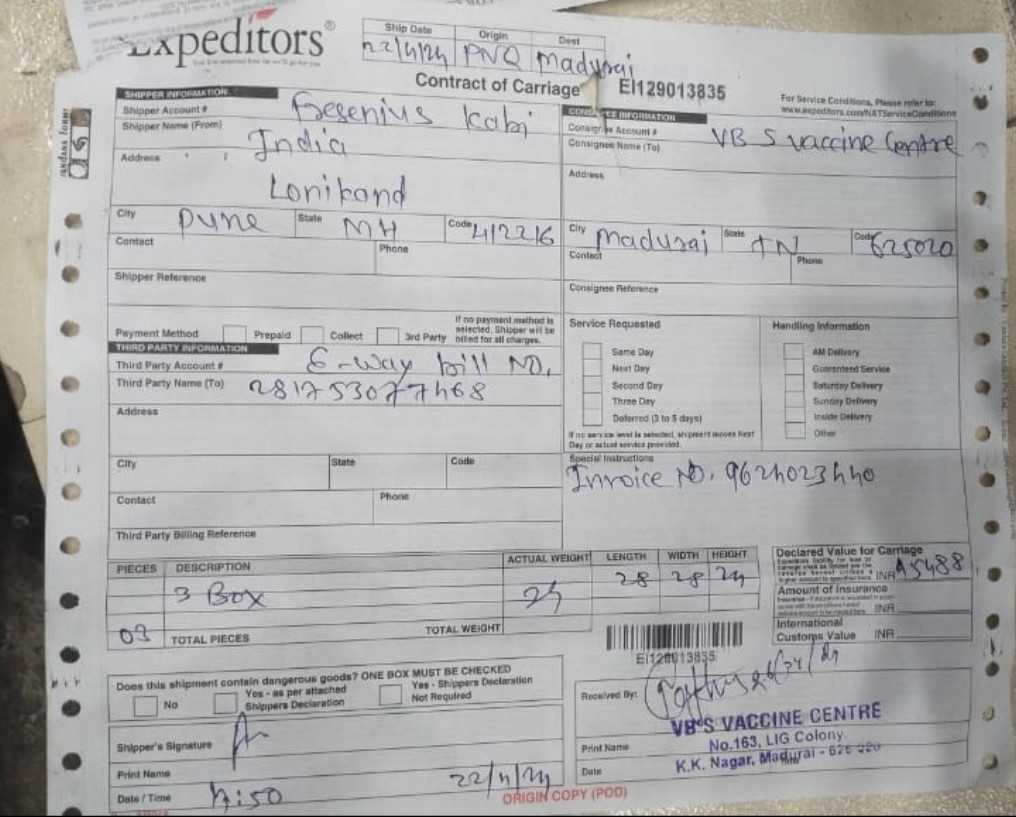 Expeditors®
Ship Date Origin Dest
22/4/24 PNQ Madurai
Contract of Carriage EI129013835
For Service Conditions, Please refer to:
www.expeditors.com/NATServiceConditions
SHIPPER INFORMATION
Shipper Account #
Shipper Name (From)
Fesenius Kabi
India
Address
Lonikand
City Pune State MH Code 412216
Contact Phone
Shipper Reference
CONSIGNEE INFORMATION
Consignee Account #
Consignee Name (To)
VB S Vaccine Centre
Address
City Madurai State TN Code 625020
Contact Phone
Consignee Reference
Payment Method Prepaid Collect 3rd Party
If no payment method is
selected, Shipper will be
billed for all charges.
THIRD PARTY INFORMATION
Third Party Account # E-way bill NO,
Third Party Name (To) 281753077468
Address
City State Code
Contact Phone
Third Party Billing Reference
Service Requested
Same Day
Next Day
Second Day
Three Day
Deferred (3 to 5 days)
If no service level is selected, shipment moves Next
Day or actual service provided.
Handling Information
AM Delivery
Guaranteed Service
Saturday Delivery
Sunday Delivery
Inside Delivery
Other
Special Instructions
Invoice NO. 9624023440
PIECES DESCRIPTION ACTUAL WEIGHT LENGTH WIDTH HEIGHT
3 Box 28 28 24
03 TOTAL PIECES TOTAL WEIGHT
Declared Value for Carriage
INR
Amount of Insurance
INR
International
Customs Value INR
EI129013835
Does this shipment contain dangerous goods? ONE BOX MUST BE CHECKED
No
Yes - as per attached
Shippers Declaration
Yes - Shippers Declaration
Not Required
Shipper's Signature
Print Name
Date / Time 17:50 22/4/24
Received By:
Print Name
Date
VB'S VACCINE CENTRE
No.163, LIG Colony
K.K. Nagar, Madurai - 625 020
ORIGIN COPY (POD)